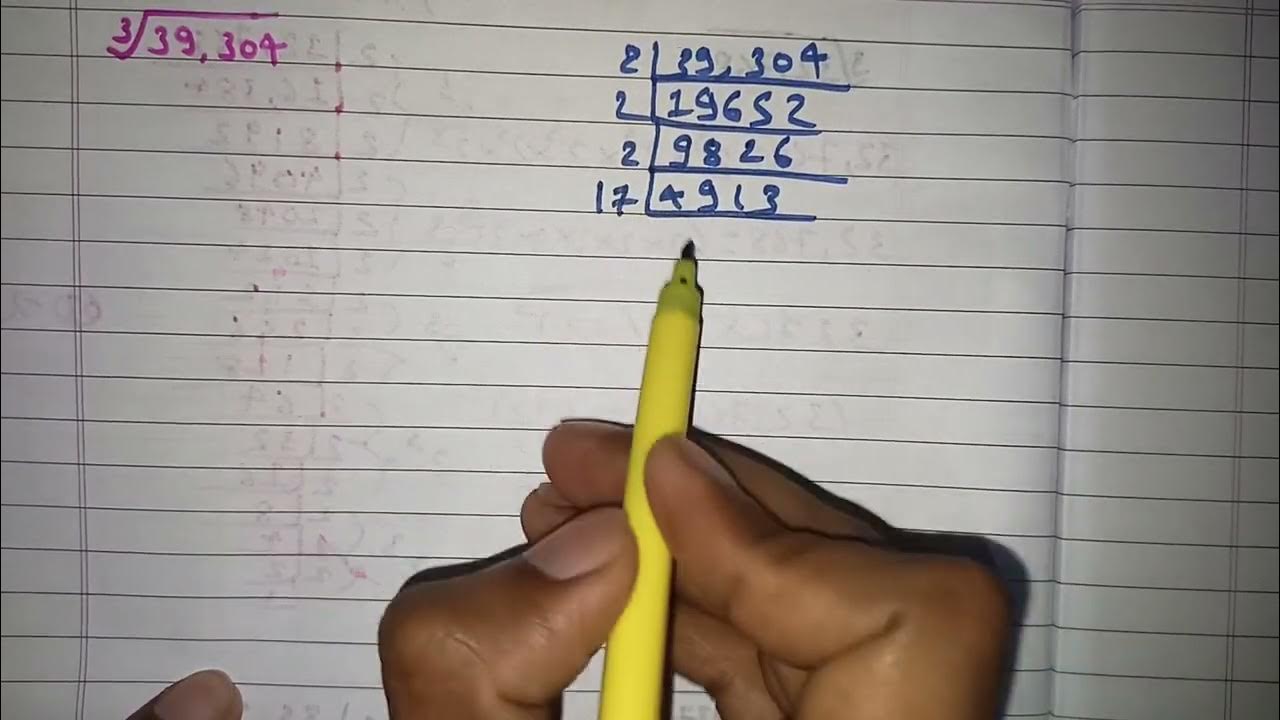 ∛39,304
2 | 39,304
2 | 19652
2 | 9826
17 | 4913